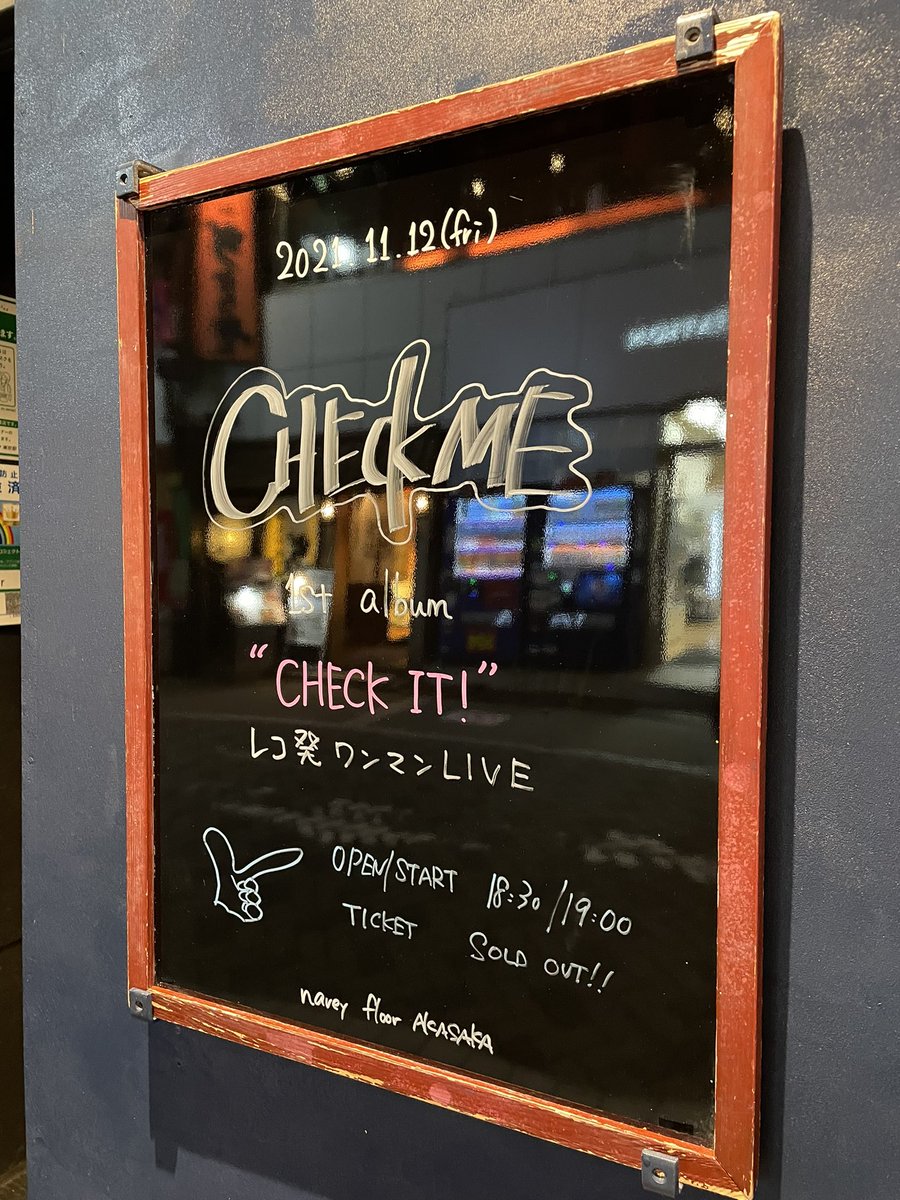 2021.11.12(fri)
CHECKME
1st album
"CHECK IT!"
レコ発ワンマンLIVE
OPEN/START 18:30/19:00
TICKET SOLD OUT!!
navey floor AKASAKA